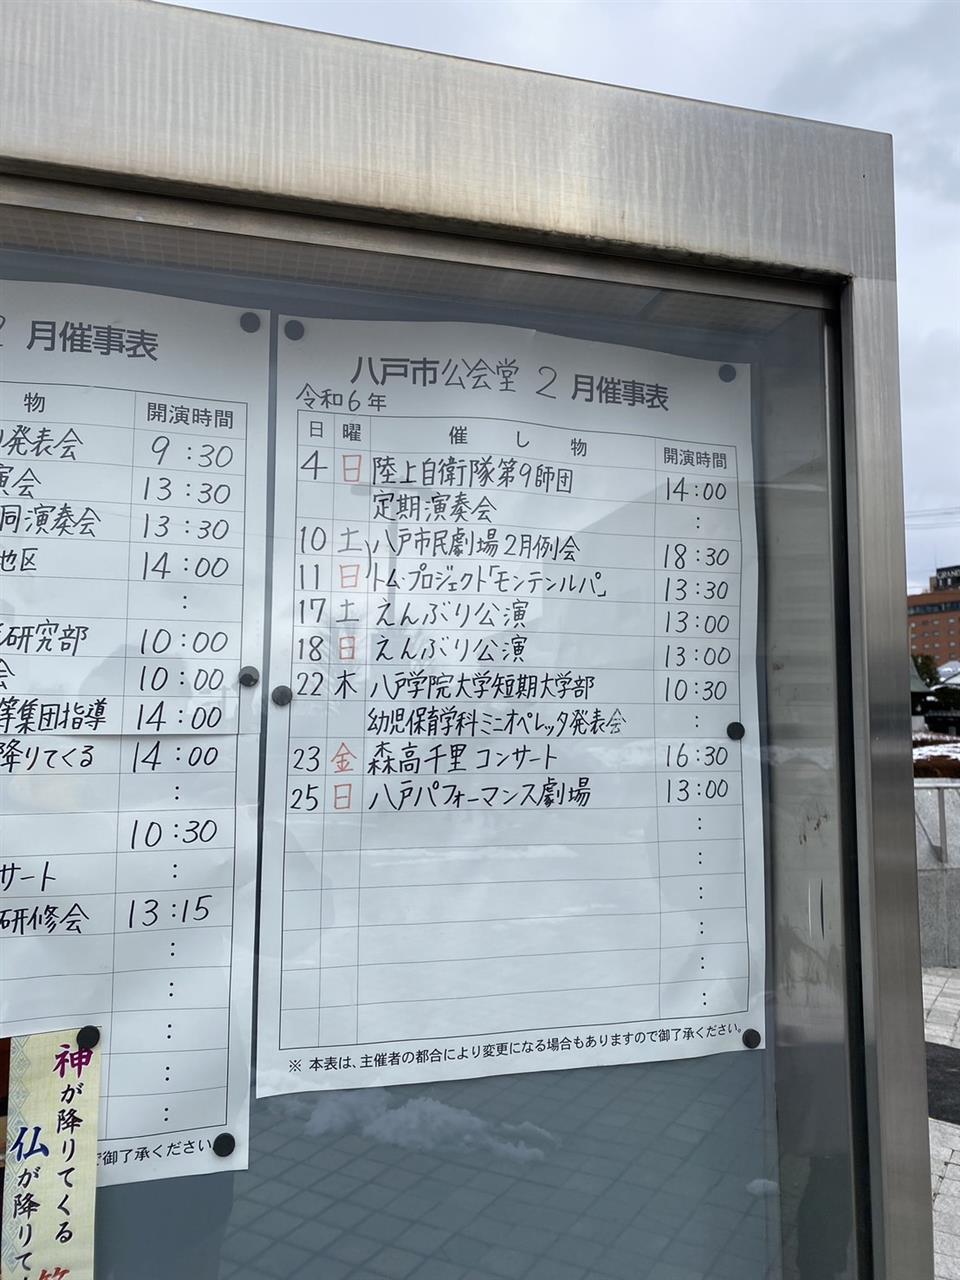 月催事表
物
開演時間
発表会
9:30
演会
13:30
同演奏会
13:30
地区
14:00
:
研究部
10:00
会
10:00
等集団指導
14:00
降りてくる
14:00
:
10:30
サート
:
研修会
13:15
:
:
:
:
:
ご了承ください。
神が降りてくる
仏が降りて
八戸市公会堂 2 月催事表
令和6年
日 曜 催し物 開演時間
4 日 陸上自衛隊第9師団 14:00
定期演奏会 :
10 土 八戸市民劇場2月例会 18:30
11 日 トム・プロジェクト「モンテンルパ」 13:30
17 土 えんぶり公演 13:00
18 日 えんぶり公演 13:00
22 木 八戸学院大学短期大学部 10:30
幼児保育学科ミニオペレッタ発表会 :
23 金 森高千里 コンサート 16:30
25 日 八戸パフォーマンス劇場 13:00
:
:
:
:
:
:
※ 本表は、主催者の都合により変更になる場合もありますので御了承ください。
GRAND